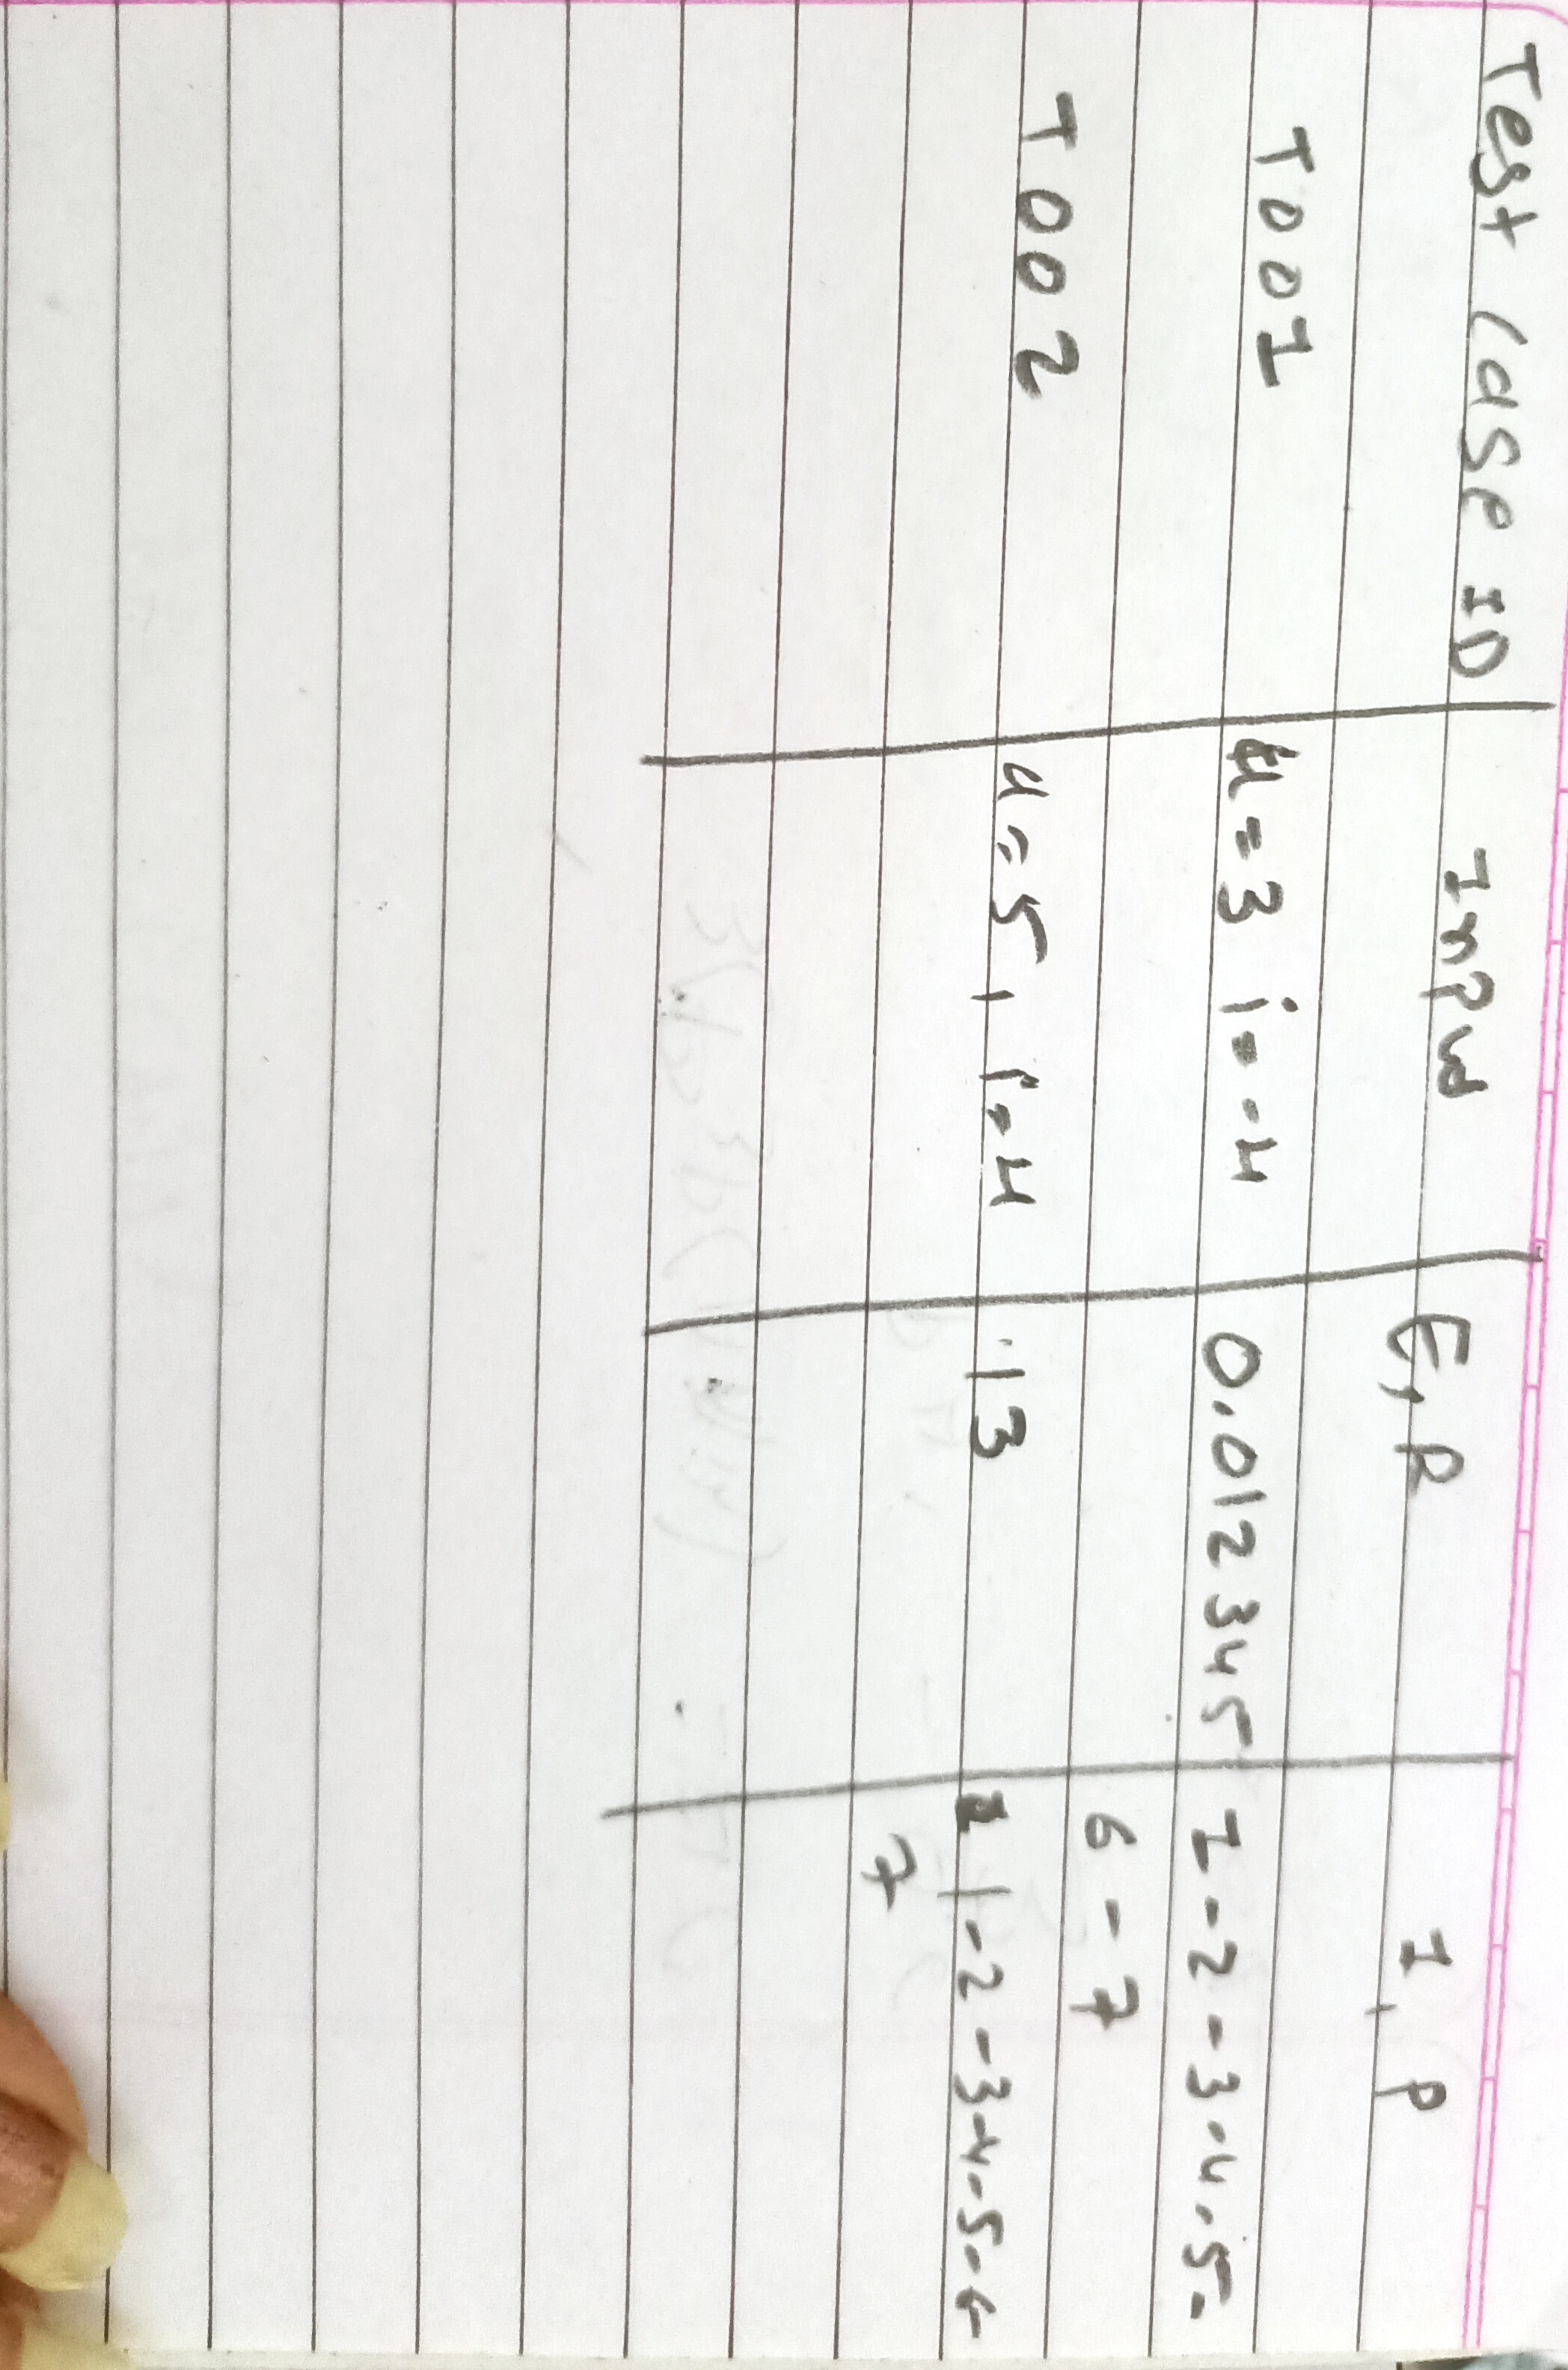 Test Case ID Input E, R I, P
T001 u=3 i=-4 0.012345 1-2-3-4-5-
6-7
T002 u=5, i=4 13 1-2-3-4-5-6
7